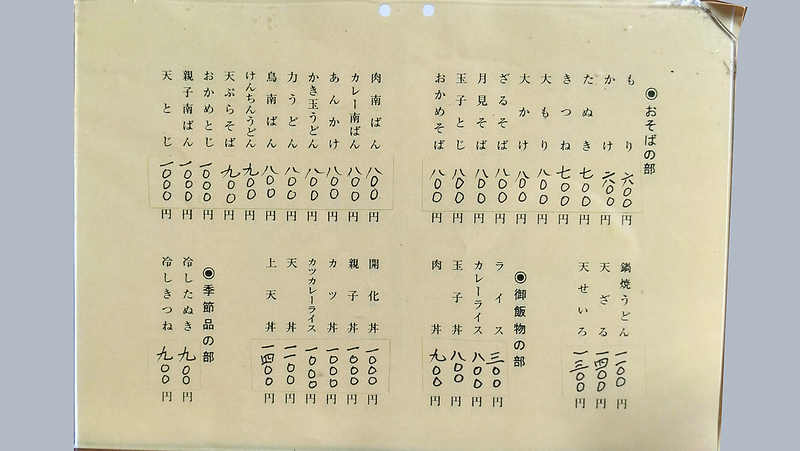 ◉おそばの部
もり 六〇〇円
かけ 六〇〇円
たぬき 七〇〇円
きつね 七〇〇円
大もり 八〇〇円
大かけ 八〇〇円
ざるそば 八〇〇円
月見そば 八〇〇円
玉子とじ 八〇〇円
おかめそば 八〇〇円
肉南ばん 八〇〇円
カレー南ばん 八〇〇円
あんかけ 八〇〇円
かき玉うどん 八〇〇円
力うどん 八〇〇円
鳥南ばん 八〇〇円
けんちんうどん 九〇〇円
天ぷらそば 九〇〇円
おかめとじ 一〇〇〇円
親子南ばん 一〇〇〇円
天とじ 一〇〇〇円
鍋焼うどん 一一〇〇円
天ざる 一四〇〇円
天せいろ 一三〇〇円
◉御飯物の部
ライス 三〇〇円
カレーライス 八〇〇円
玉子丼 八〇〇円
肉丼 九〇〇円
開化丼 一〇〇〇円
親子丼 一〇〇〇円
カツ丼 一〇〇〇円
カツカレーライス 一〇〇〇円
天丼 一一〇〇円
上天丼 一四〇〇円
◉季節品の部
冷したぬき 九〇〇円
冷しきつね 九〇〇円